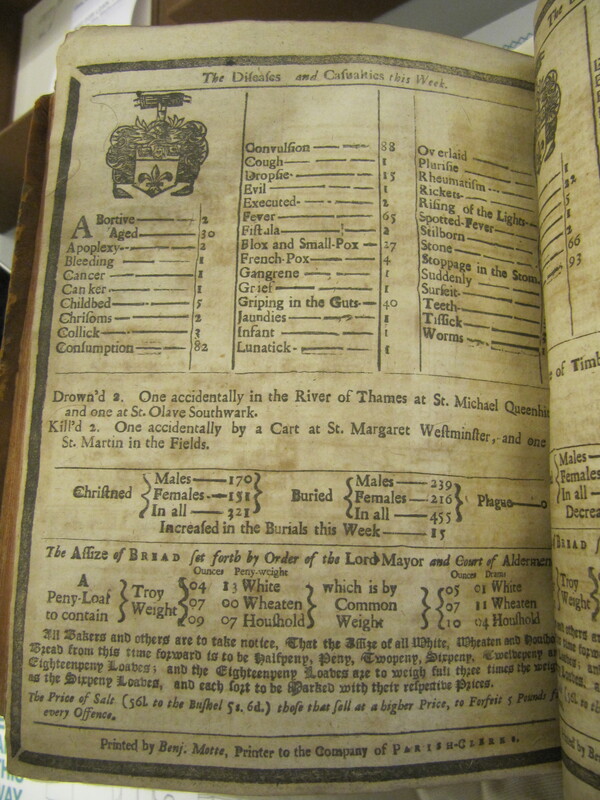 The Diseases and Casualties this Week.
ABortive 2
Aged 30
Apoplexy 2
Bleeding 1
Cancer 1
Canker 1
Childbed 5
Chrisoms 2
Collick 3
Consumption 82
Convulsion 88
Cough 1
Dropsie 15
Evil 1
Executed 2
Fever 65
Fistula 2
Flox and Small-Pox 27
French-Pox 4
Gangrene 1
Grief 1
Griping in the Guts 40
Jaundies 1
Infant 1
Lunatick 1
Overlaid
Plurisie
Rheumatism
Rickets
Rising of the Lights
Spotted-Fever
Stilborn
Stone
Stoppage in the Stom
Suddenly
Surfeit
Teeth
Tissick
Worms
Drown'd 2. One accidentally in the River of Thames at St. Michael Queenhi
and one at St. Olave Southwark.
Kill'd 2. One accidentally by a Cart at St. Margaret Westminster, and one
St. Martin in the Fields.
Christned Males 170 Females 151 In all 321 Buried Males 239 Females 216 In all 455 Plague 0
Increased in the Burials this Week 15
The Assize of BREAD set forth by Order of the Lord Mayor and Court of Aldermen
Ounces Peny-weight Ounces Drams
A Peny-Loaf to contain Troy Weight 04 13 White which is by Common Weight 05 01 White
07 00 Wheaten 07 11 Wheaten
09 07 Houshold 10 04 Houshold
All Bakers and others are to take notice, That the Assize of all White, Wheaten and Housho
Bread from this time forward is to be Halfpeny, Peny, Twopeny, Sixpeny, Twelvepeny
Eighteenpeny Loaves; and the Eighteenpeny Loaves are to weigh full three times the weig
as the Sixpeny Loaves, and each sort to be Marked with their respective Prices.
The Price of Salt (56l. to the Bushel 5s. 6d.) those that sell at a higher Price, to Forfeit 5 Pounds
every Offence.
Printed by Benj. Motte, Printer to the Company of PARISH-CLERKS.